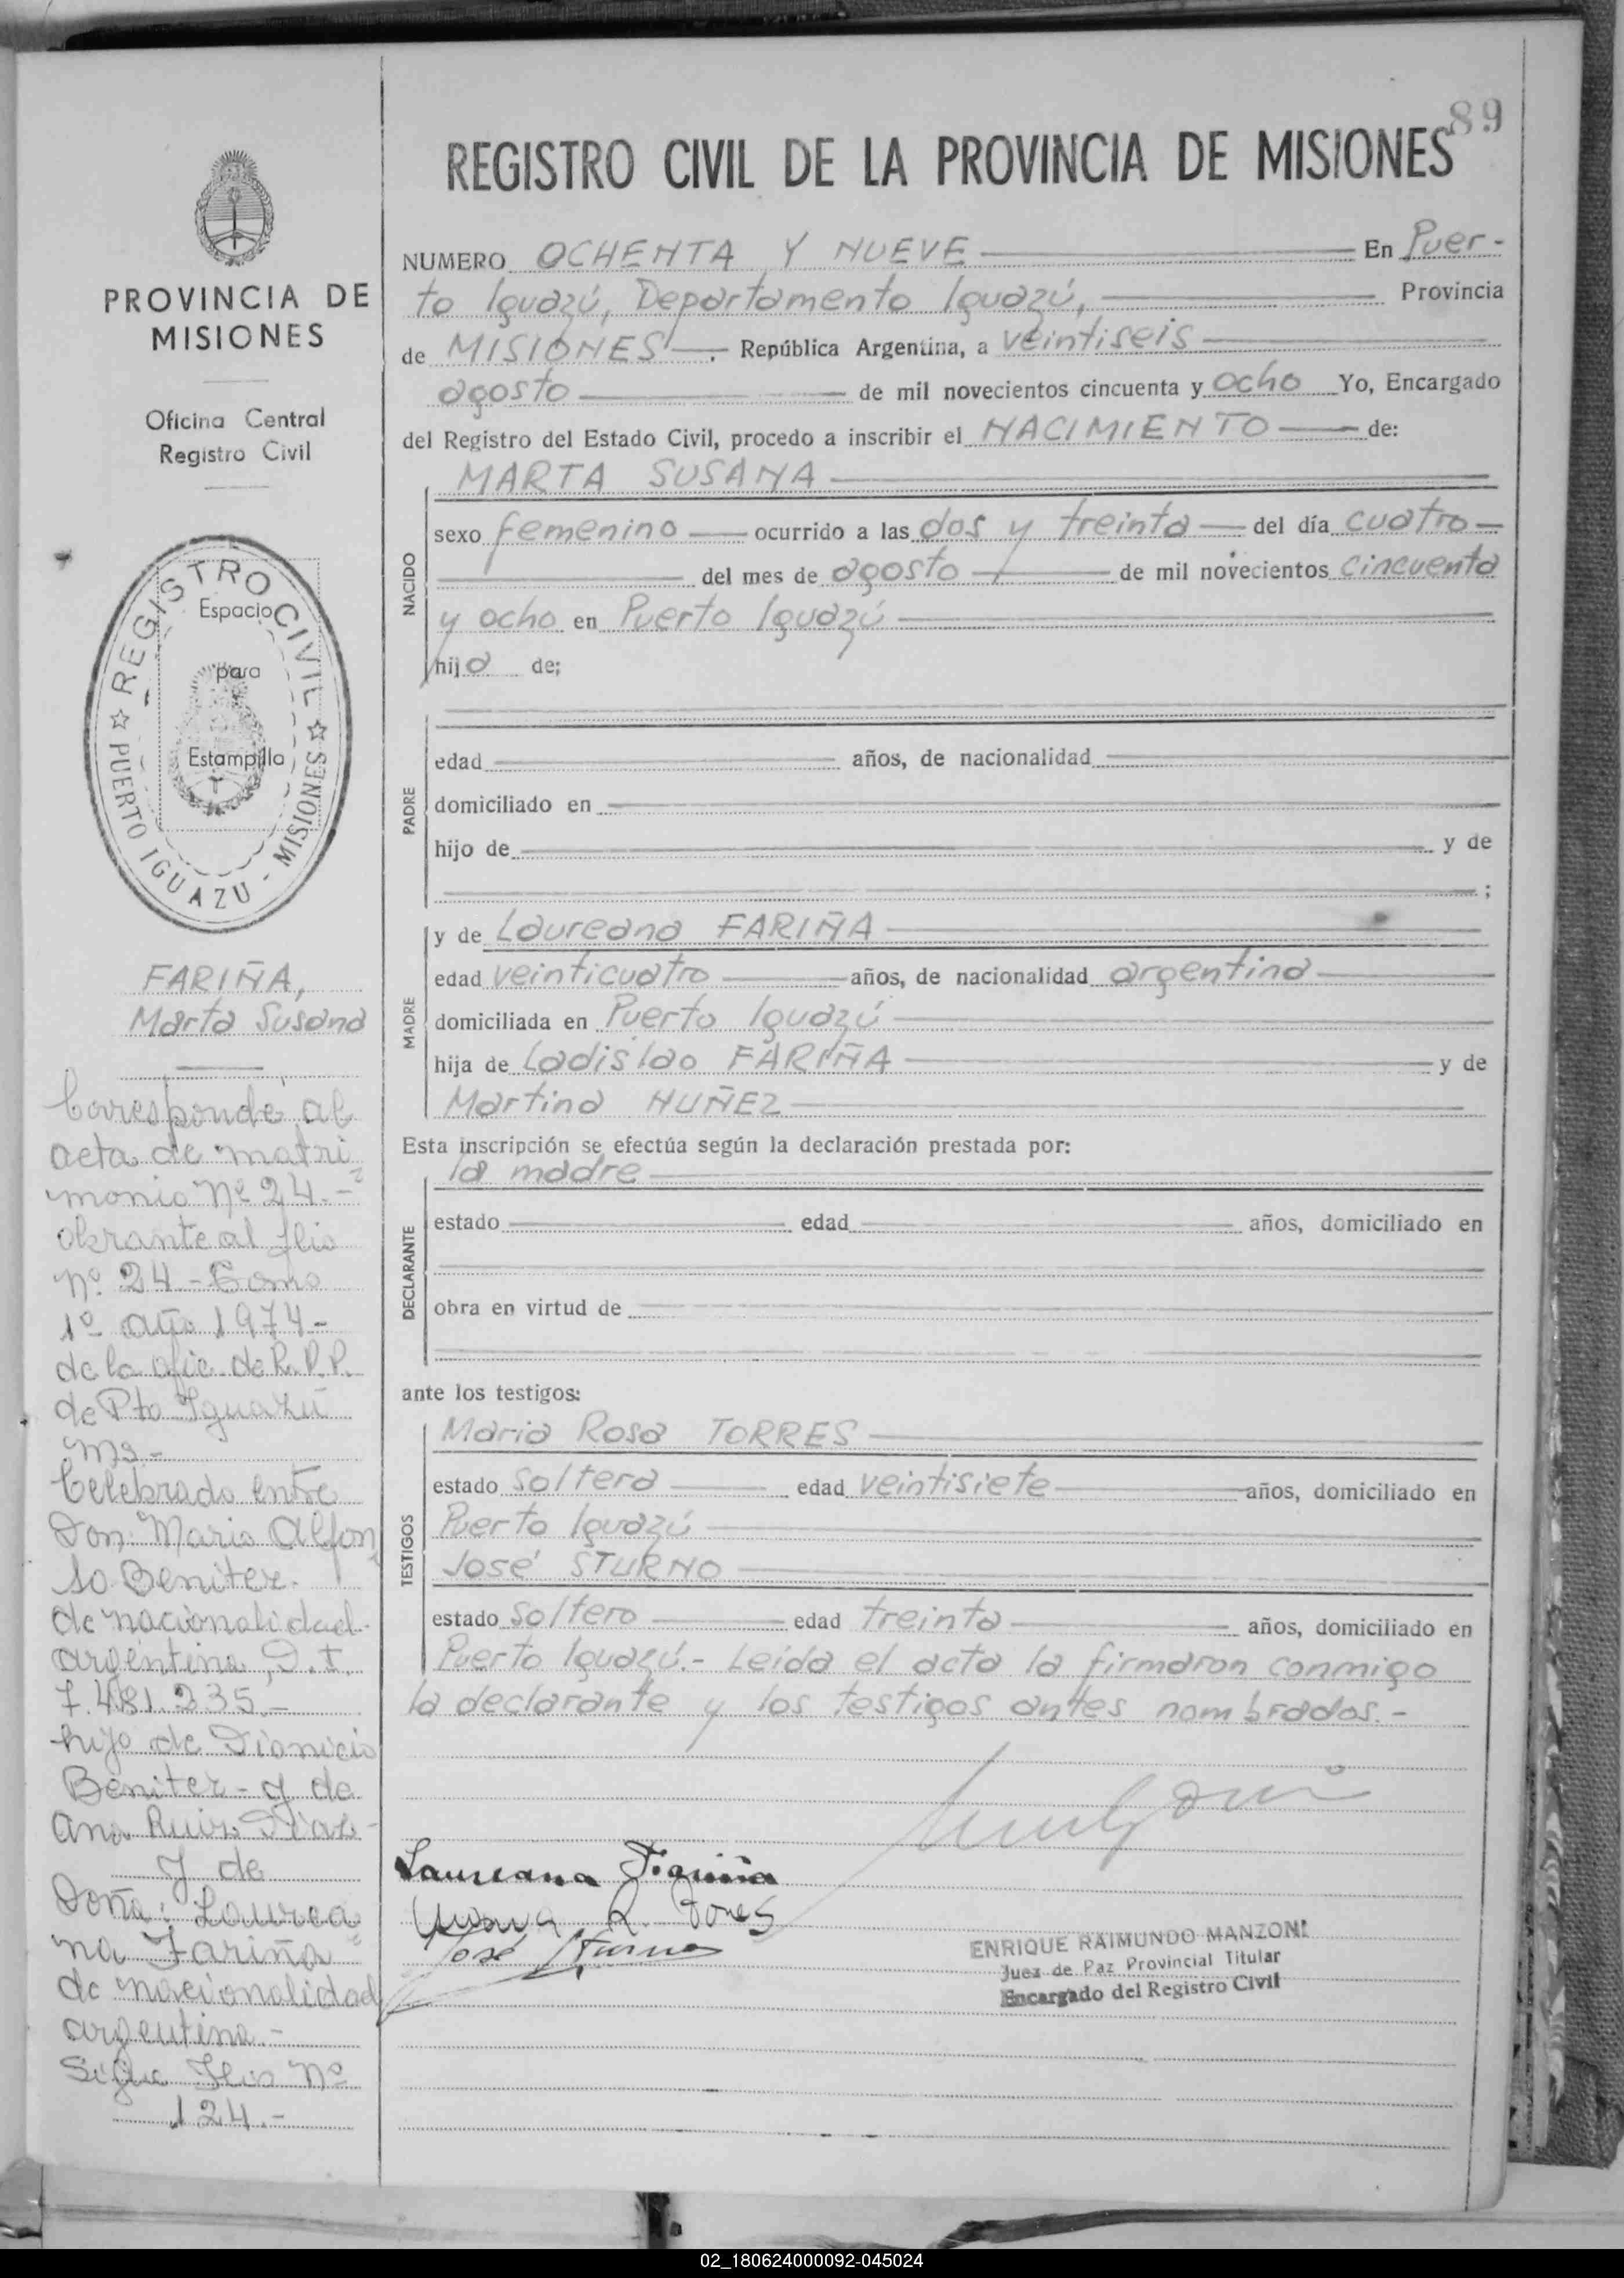 89
REGISTRO CIVIL DE LA PROVINCIA DE MISIONES
NUMERO OCHENTA Y NUEVE En Puer-
to Iguazú, Departamento Iguazú, Provincia
de MISIONES, República Argentina, a veintiseis
agosto de mil novecientos cincuenta y ocho Yo, Encargado
del Registro del Estado Civil, procedo a inscribir el NACIMIENTO de:
NACIDO
MARTA SUSANA
sexo femenino ocurrido a las dos y treinta del día cuatro
del mes de agosto de mil novecientos cincuenta
y ocho en Puerto Iguazú
hija de;
PADRE
edad años, de nacionalidad
domiciliado en
hijo de y de
;
MADRE
y de Laureana FARIÑA
edad veinticuatro años, de nacionalidad argentina
domiciliada en Puerto Iguazú
hija de Ladislao FARIÑA y de
Martina NUÑEZ
Esta inscripción se efectúa según la declaración prestada por:
DECLARANTE
la madre
estado edad años, domiciliado en
obra en virtud de
ante los testigos:
TESTIGOS
Maria Rosa TORRES
estado soltera edad veintisiete años, domiciliado en
Puerto Iguazú
José STURNO
estado soltero edad treinta años, domiciliado en
Puerto Iguazú.- Leída el acta la firmaron conmigo
la declarante y los testigos antes nombrados.-
Laureana Fariña
R. Torres
José Sturno
ENRIQUE RAIMUNDO MANZONI
Juez de Paz Provincial Titular
Encargado del Registro Civil
PROVINCIA DE
MISIONES
Oficina Central
Registro Civil
REGISTRO CIVIL
PUERTO IGUAZU - MISIONES
Espacio
para
Estampilla
FARIÑA,
Marta Susana
Corresponde al
acta de matri
monio Nº 24.-
obrante al flio
Nº 24 - Tomo
1º año 1974-
de la ofic. de R.P.P.
de Pto Iguazú
Ms.-
Celebrado entre
Don: Mario Alfon
so Benitez.
de nacionalidad
argentina, D.I.
7.481.235.-
hijo de Dionicio
Benitez - y de
Ana Ruiz Diaz-
y de
Doña: Laurea
na Fariña
de nacionalidad
argentina.-
Sigue flio Nº
124.-
02_180624000092-045024